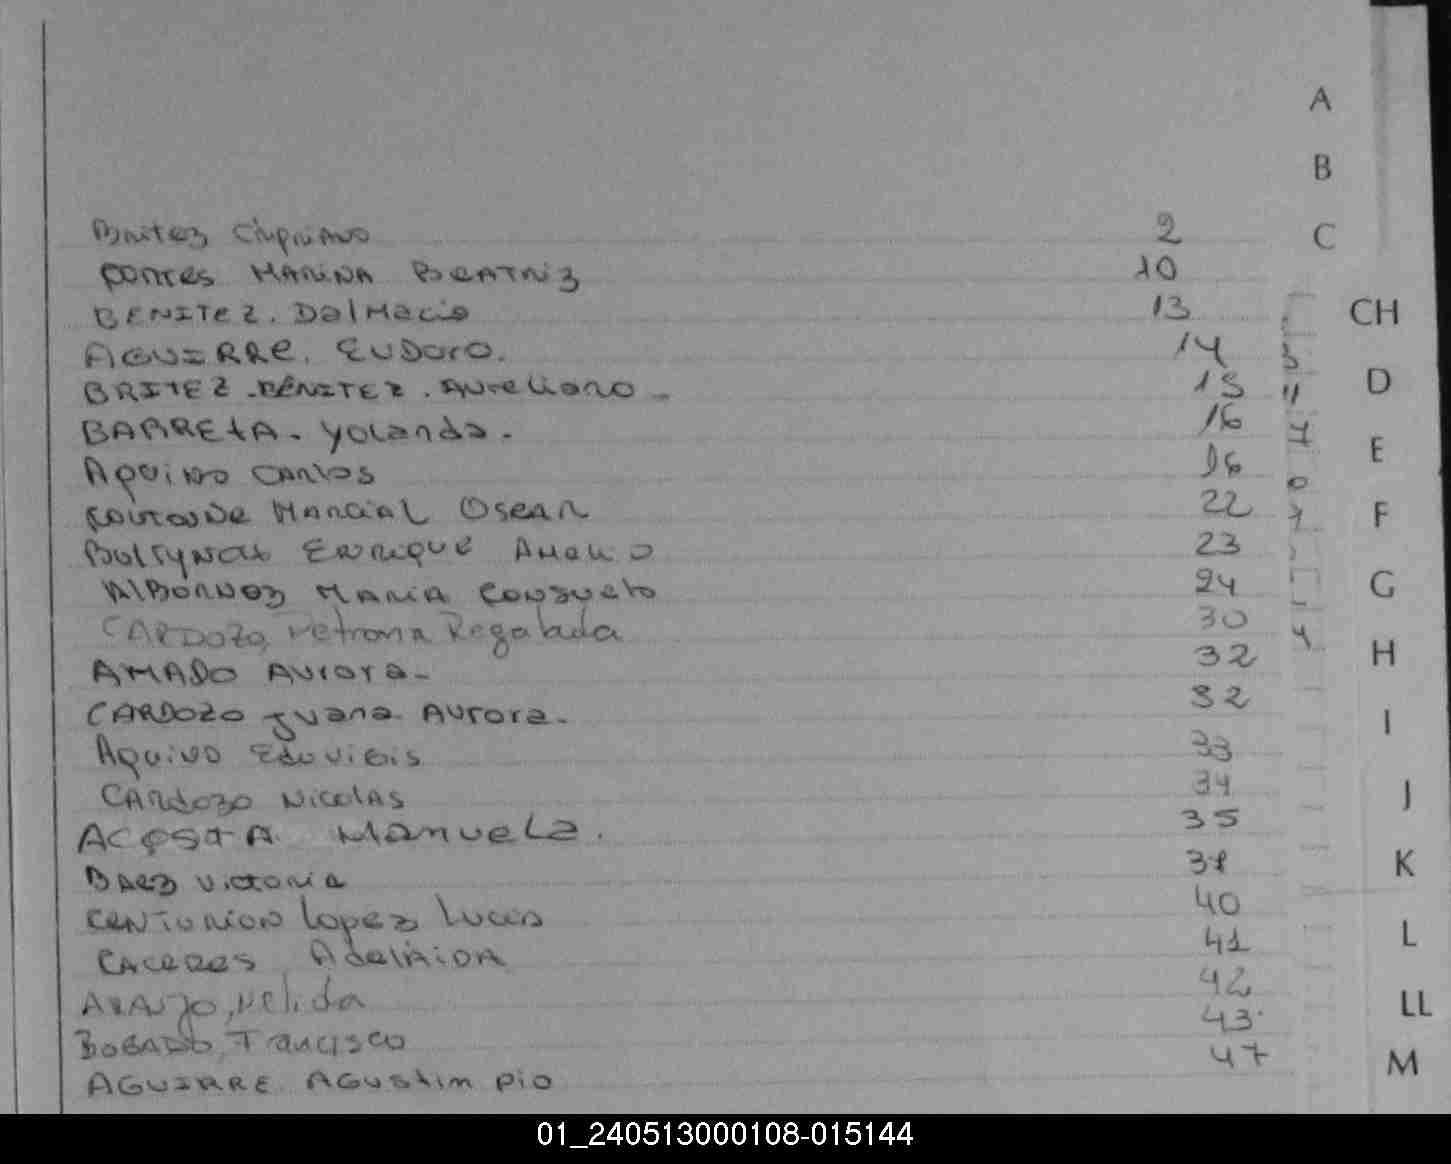 A
B
C
Britez Cipriano 2
Cortes Marina Beatriz 10
BENITEZ. Dalmacio 13
CH
AGUIRRE. EUDoro. 14
BRITEZ-BENITEZ. Aureliano - 15
D
BARRETA - Yolanda. 16
Aquino Carlos 16
E
Marcial Oscar 22
F
Enrique Amelio 23
Albornoz Maria Consuelo 24
G
CARDOZO, Petrona Regalada 30
AMADO Aurora - 32
H
CARDOZO Juana Aurora - 32
I
Aquino Eduvigis 33
Cardozo Nicolas 34
J
ACOSTA Manuela. 35
Baez Victoria
K
Centurion Lopez Lucas 40
CACERES Adelaida 41
L
Araujo, Nelida 42
LL
BOGADO, Francisco 43
AGUIRRE Agustin Pio 47
M
01_240513000108-015144